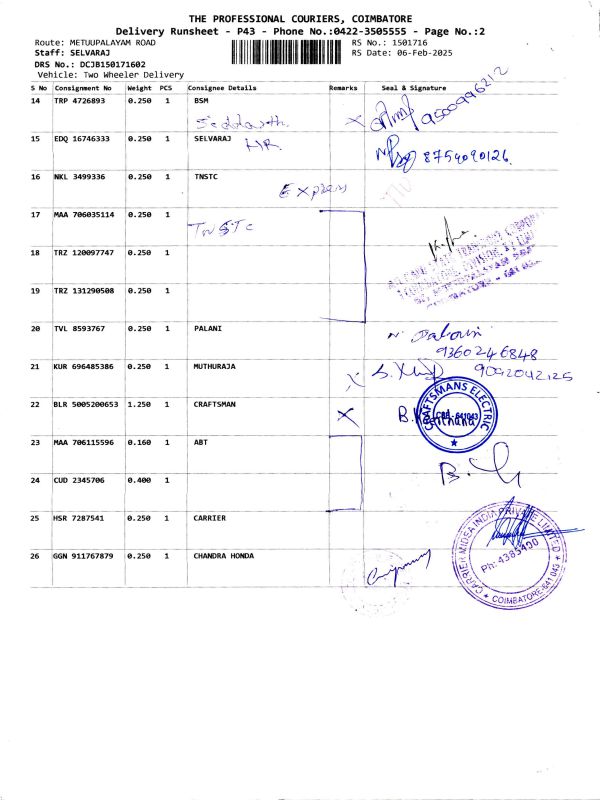 THE PROFESSIONAL COURIERS, COIMBATORE
Delivery Runsheet - P43 - Phone No.:0422-3505555 - Page No.:2
Route: METUUPALAYAM ROAD RS No.: 1501716
Staff: SELVARAJ RS Date: 06-Feb-2025
DRS No.: DCJB150171602
Vehicle: Two Wheeler Delivery
S No Consignment No Weight PCS Consignee Details Remarks Seal & Signature
14 TRP 4726893 0.250 1 BSM
9500996212
15 EDQ 16746333 0.250 1 SELVARAJ
HR. 8754090126.
16 NKL 3499336 0.250 1 TNSTC
Express
17 MAA 706035114 0.250 1
TNSTC
18 TRZ 120097747 0.250 1
19 TRZ 131290508 0.250 1
20 TVL 8593767 0.250 1 PALANI
9360246848
21 KUR 696485386 0.250 1 MUTHURAJA
9092042125
22 BLR 5005200653 1.250 1 CRAFTSMAN
CRAFTSMANS ELECTRIC
CBE - 641043
23 MAA 706115596 0.160 1 ABT
24 CUD 2345706 0.400 1
25 HSR 7287541 0.250 1 CARRIER
CARRIER MIDEA INDIA PRIVATE LIMITED
Ph: 4385400
COIMBATORE-641 043
26 GGN 911767879 0.250 1 CHANDRA HONDA